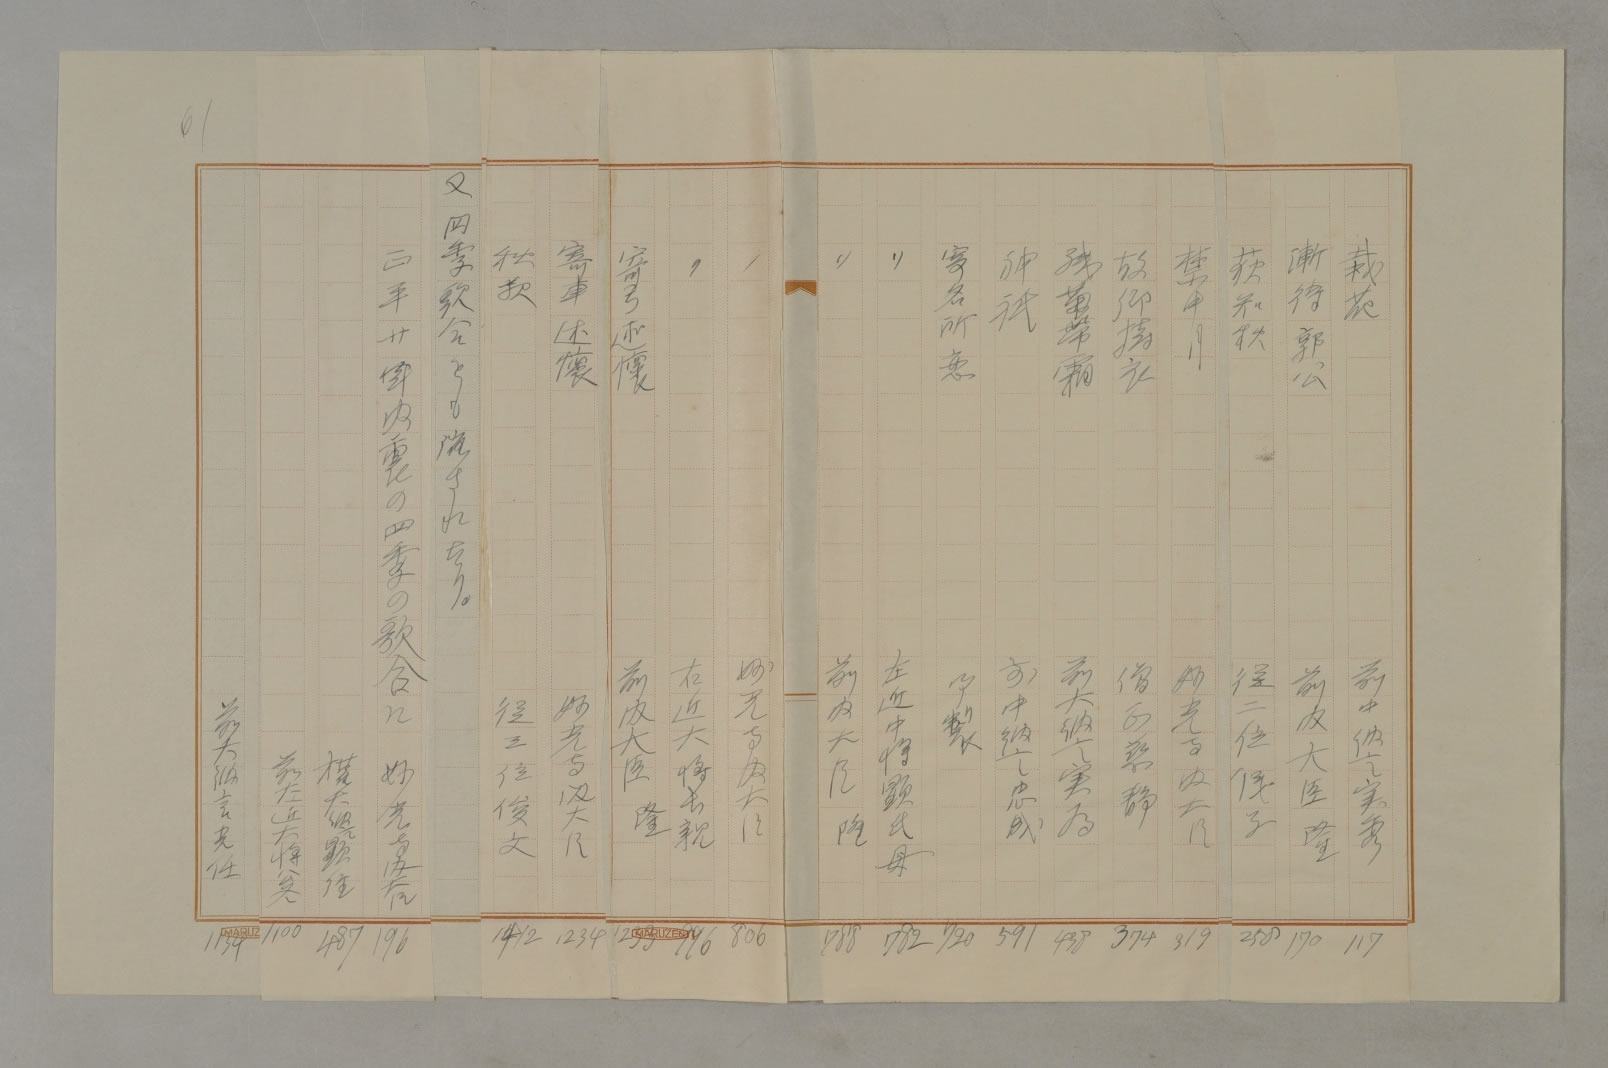 61
栽花 前中納言実秀 117
漸待郭公 前内大臣隆 170
荻知秋 従二位儀子 258
禁中月 妙光寺内大臣 319
故郷擣衣 僧正慈静 374
残菊帯霜 前大納言実為 438
神祇 前中納言忠成 591
寄名所恋 御製 720
〃 左近中将顕氏母 782
〃 前内大臣隆 788
〃 妙光寺内大臣 806
〃 右近大将長親 796
寄弓述懐 前内大臣隆
寄車述懐 妙光寺内大臣 1234
秋歌 従三位俊文 1412
又四季歌合とも院されたり。
正平廿年内裏の四季の歌合に 妙光寺内大臣 196
権大納言顕住 487
前左近大将公冬 1100
前大納言光任 1134
MARUZEN